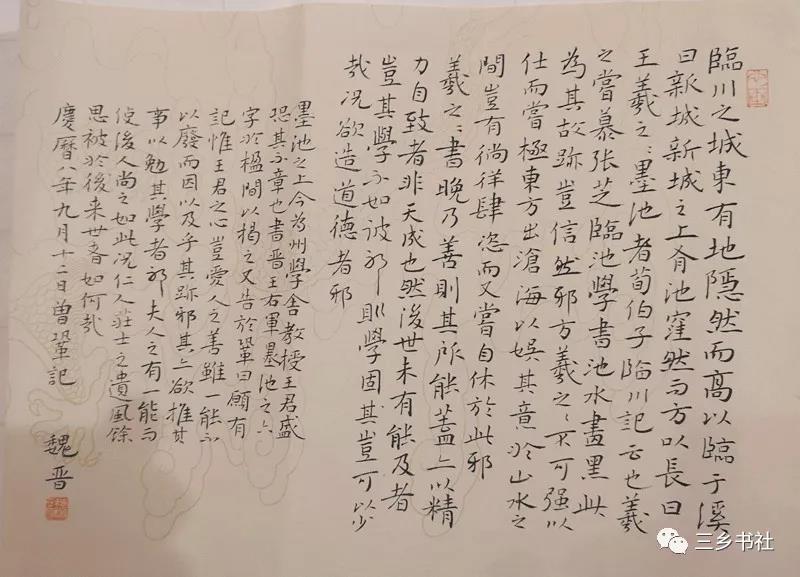 臨川之城東有地隱然而高以臨于溪
曰新城新城之上有池窪然而方以長曰
王羲之〻墨池者荀伯子臨川記云也羲
之嘗慕張芝臨池學書池水盡黑此
為其故跡豈信然邪方羲之〻不可强以
仕而嘗極東方出滄海以娛其意於山水之
間豈有徜徉肆恣而又嘗自休於此邪
羲之〻書晚乃善則其所能蓋亦以精
力自致者非天成也然後世未有能及者
豈其學不如彼邪則學固其豈可以少
哉况欲造道德者邪
墨池之上今為州學舍教授王君盛
恐其不章也書晋王右軍墨池之六
字於楹間以揭之又告於鞏曰願有
記惟王君之心豈愛人之善雖一能不
以廢而因以及乎其跡邪其亦欲推其
事以勉其學者邪夫人之有一能而
使後人尚之如此况仁人莊士之遺風餘
思被於後来世者如何哉
慶曆八年九月十二日曾鞏記
魏晋
三乡书社